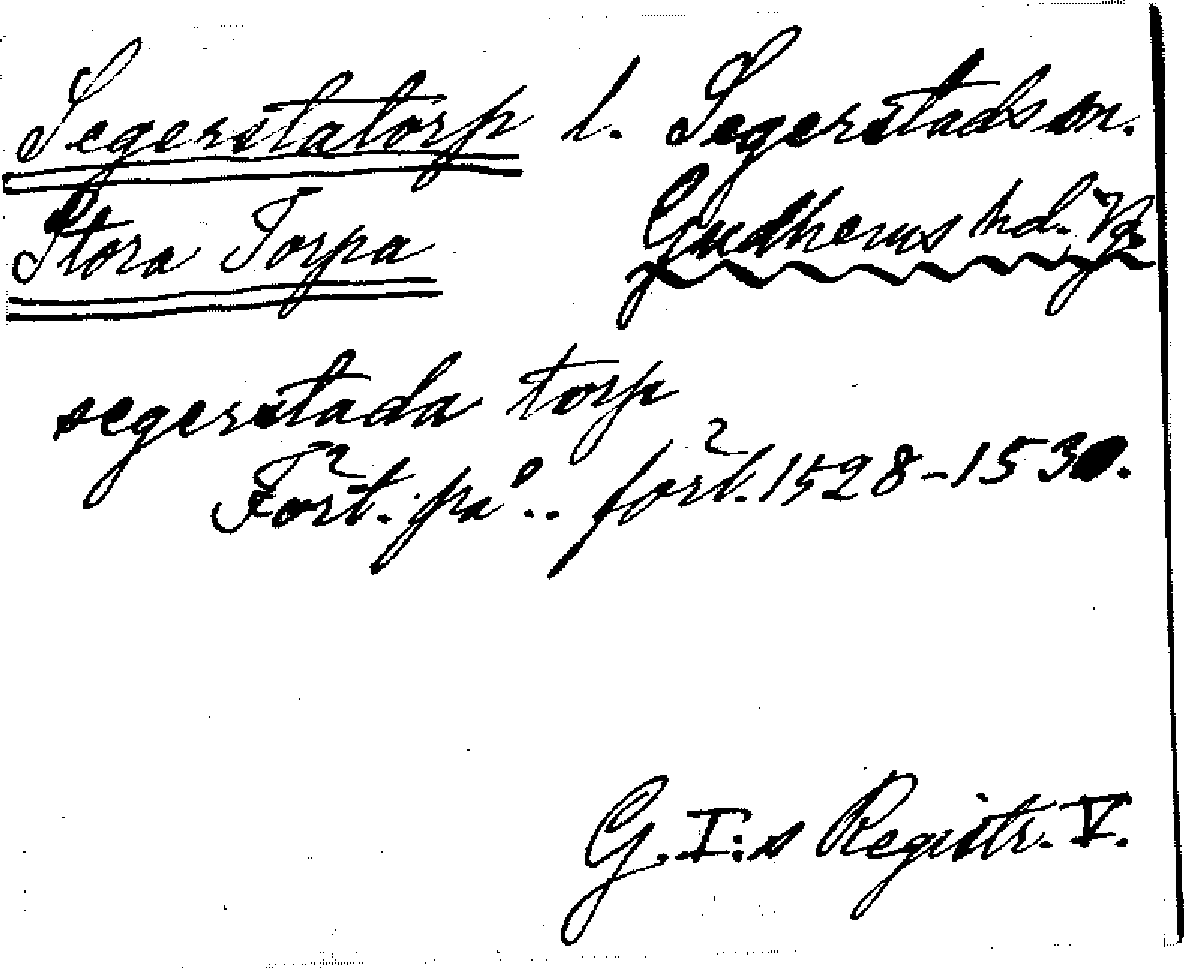 Segerstatorp l. Segerstads sn.
Stora Torpa Gudhems hd. Vg.
segerstada torp
Fört. på .. fört. 1528-1530.
G. I:s Registr. V.